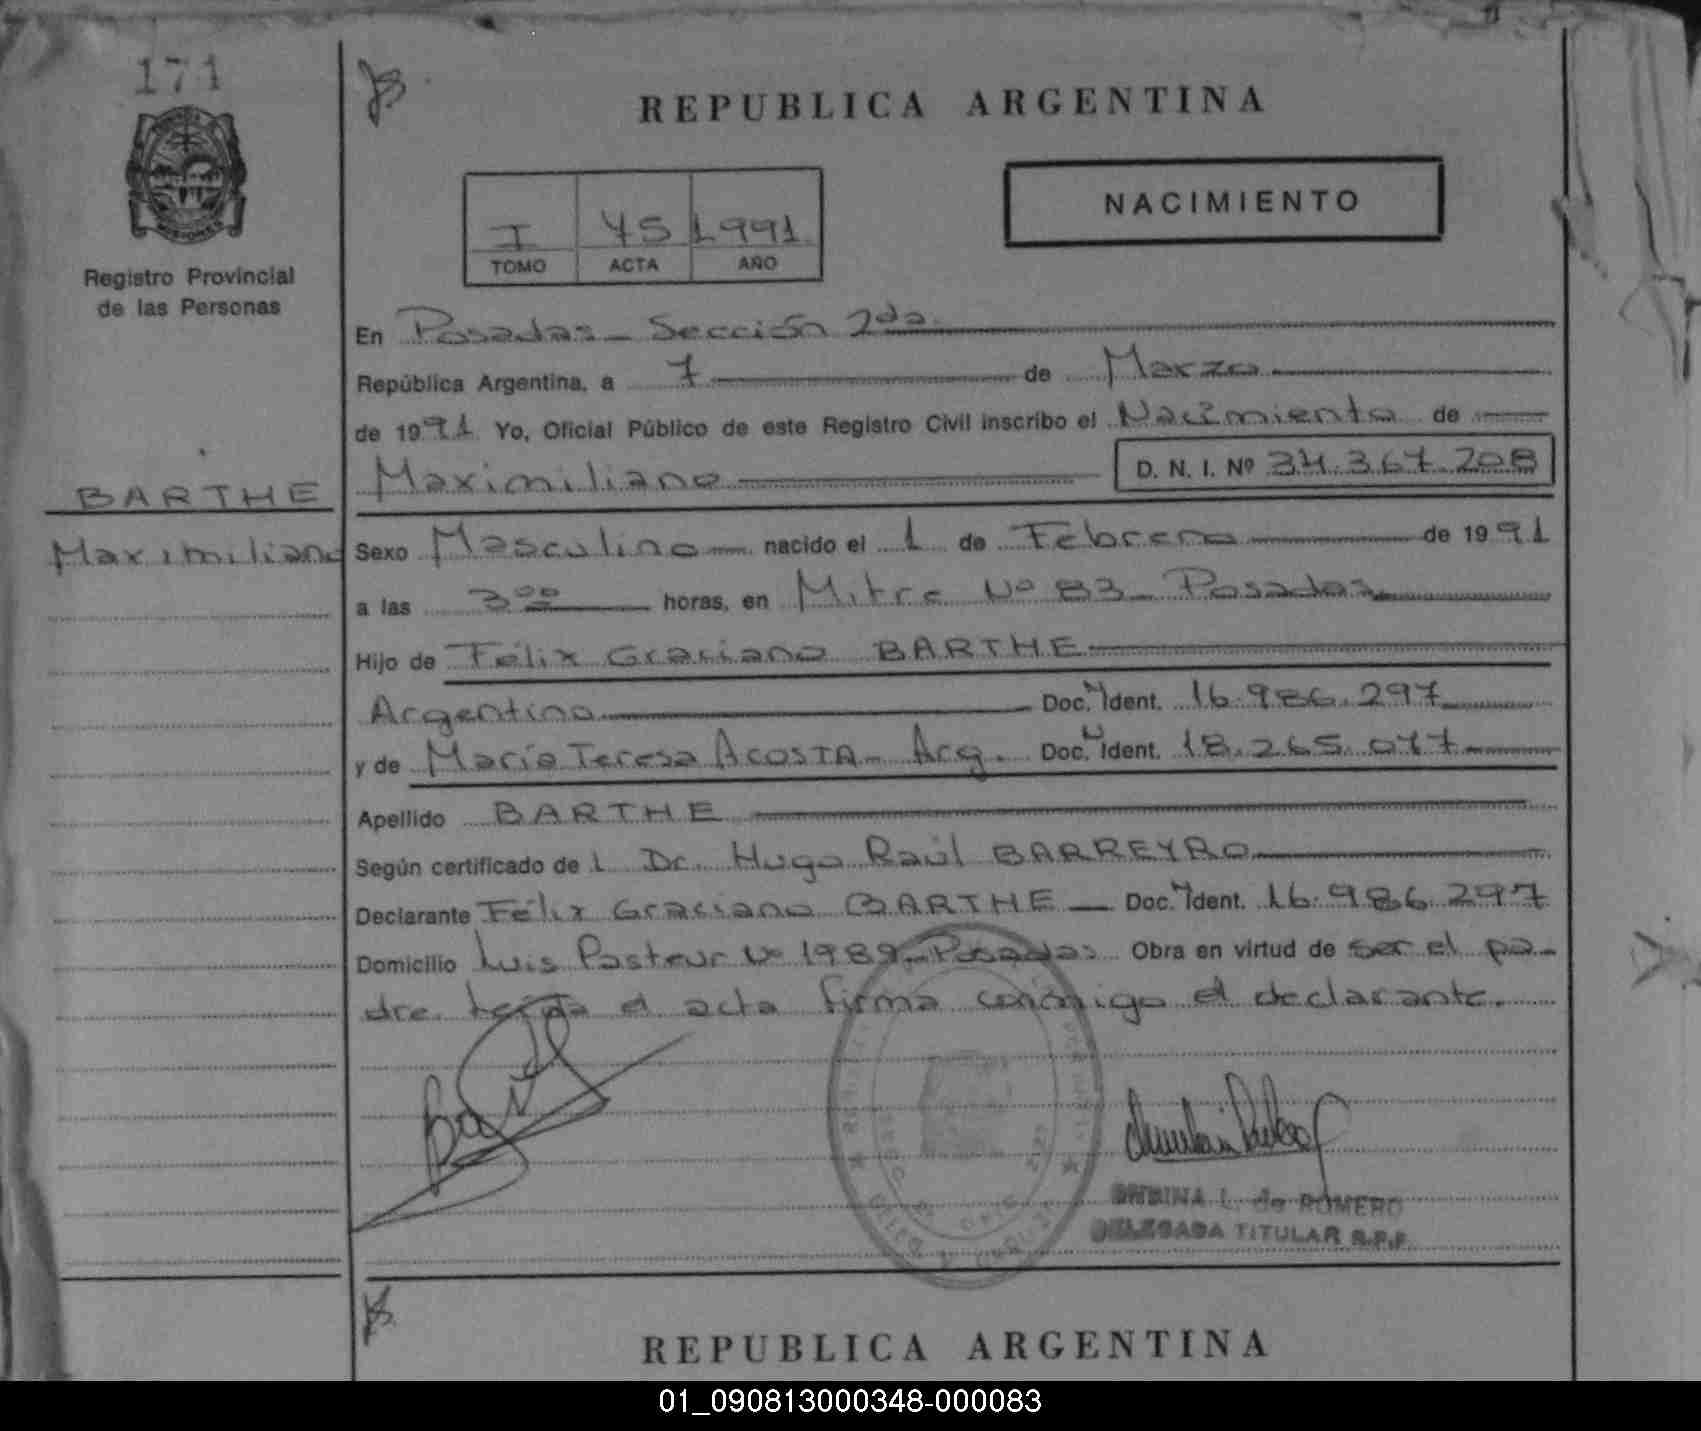 171
REPUBLICA ARGENTINA
NACIMIENTO
I 45 1991
TOMO ACTA AÑO
MISIONES
Registro Provincial
de las Personas
En Posadas - Sección 2da.
República Argentina, a 7 de Marzo
de 1991 Yo, Oficial Público de este Registro Civil inscribo el Nacimiento de
Maximiliano D. N. I. Nº 34.367.208
BARTHE
Maximiliano
Sexo Masculino nacido el 1 de Febrero de 1991
a las 3 00 horas, en Mitre Nº 83 - Posadas
Hijo de Félix Graciano BARTHE
Argentino Doc. Ident. 16.986.297
y de María Teresa ACOSTA - Arg. Doc. Ident. 18.265.077
Apellido BARTHE
Según certificado de l Dr. Hugo Raúl BARREYRO
Declarante Félix Graciano BARTHE - Doc. Ident. 16.986.297
Domicilio Luis Pasteur Nº 1989 - Posadas Obra en virtud de ser el pa-
dre. Leída el acta firma conmigo el declarante.
L. de ROMERO
DELEGADA TITULAR R.P.P.
REPUBLICA ARGENTINA
01_090813000348-000083